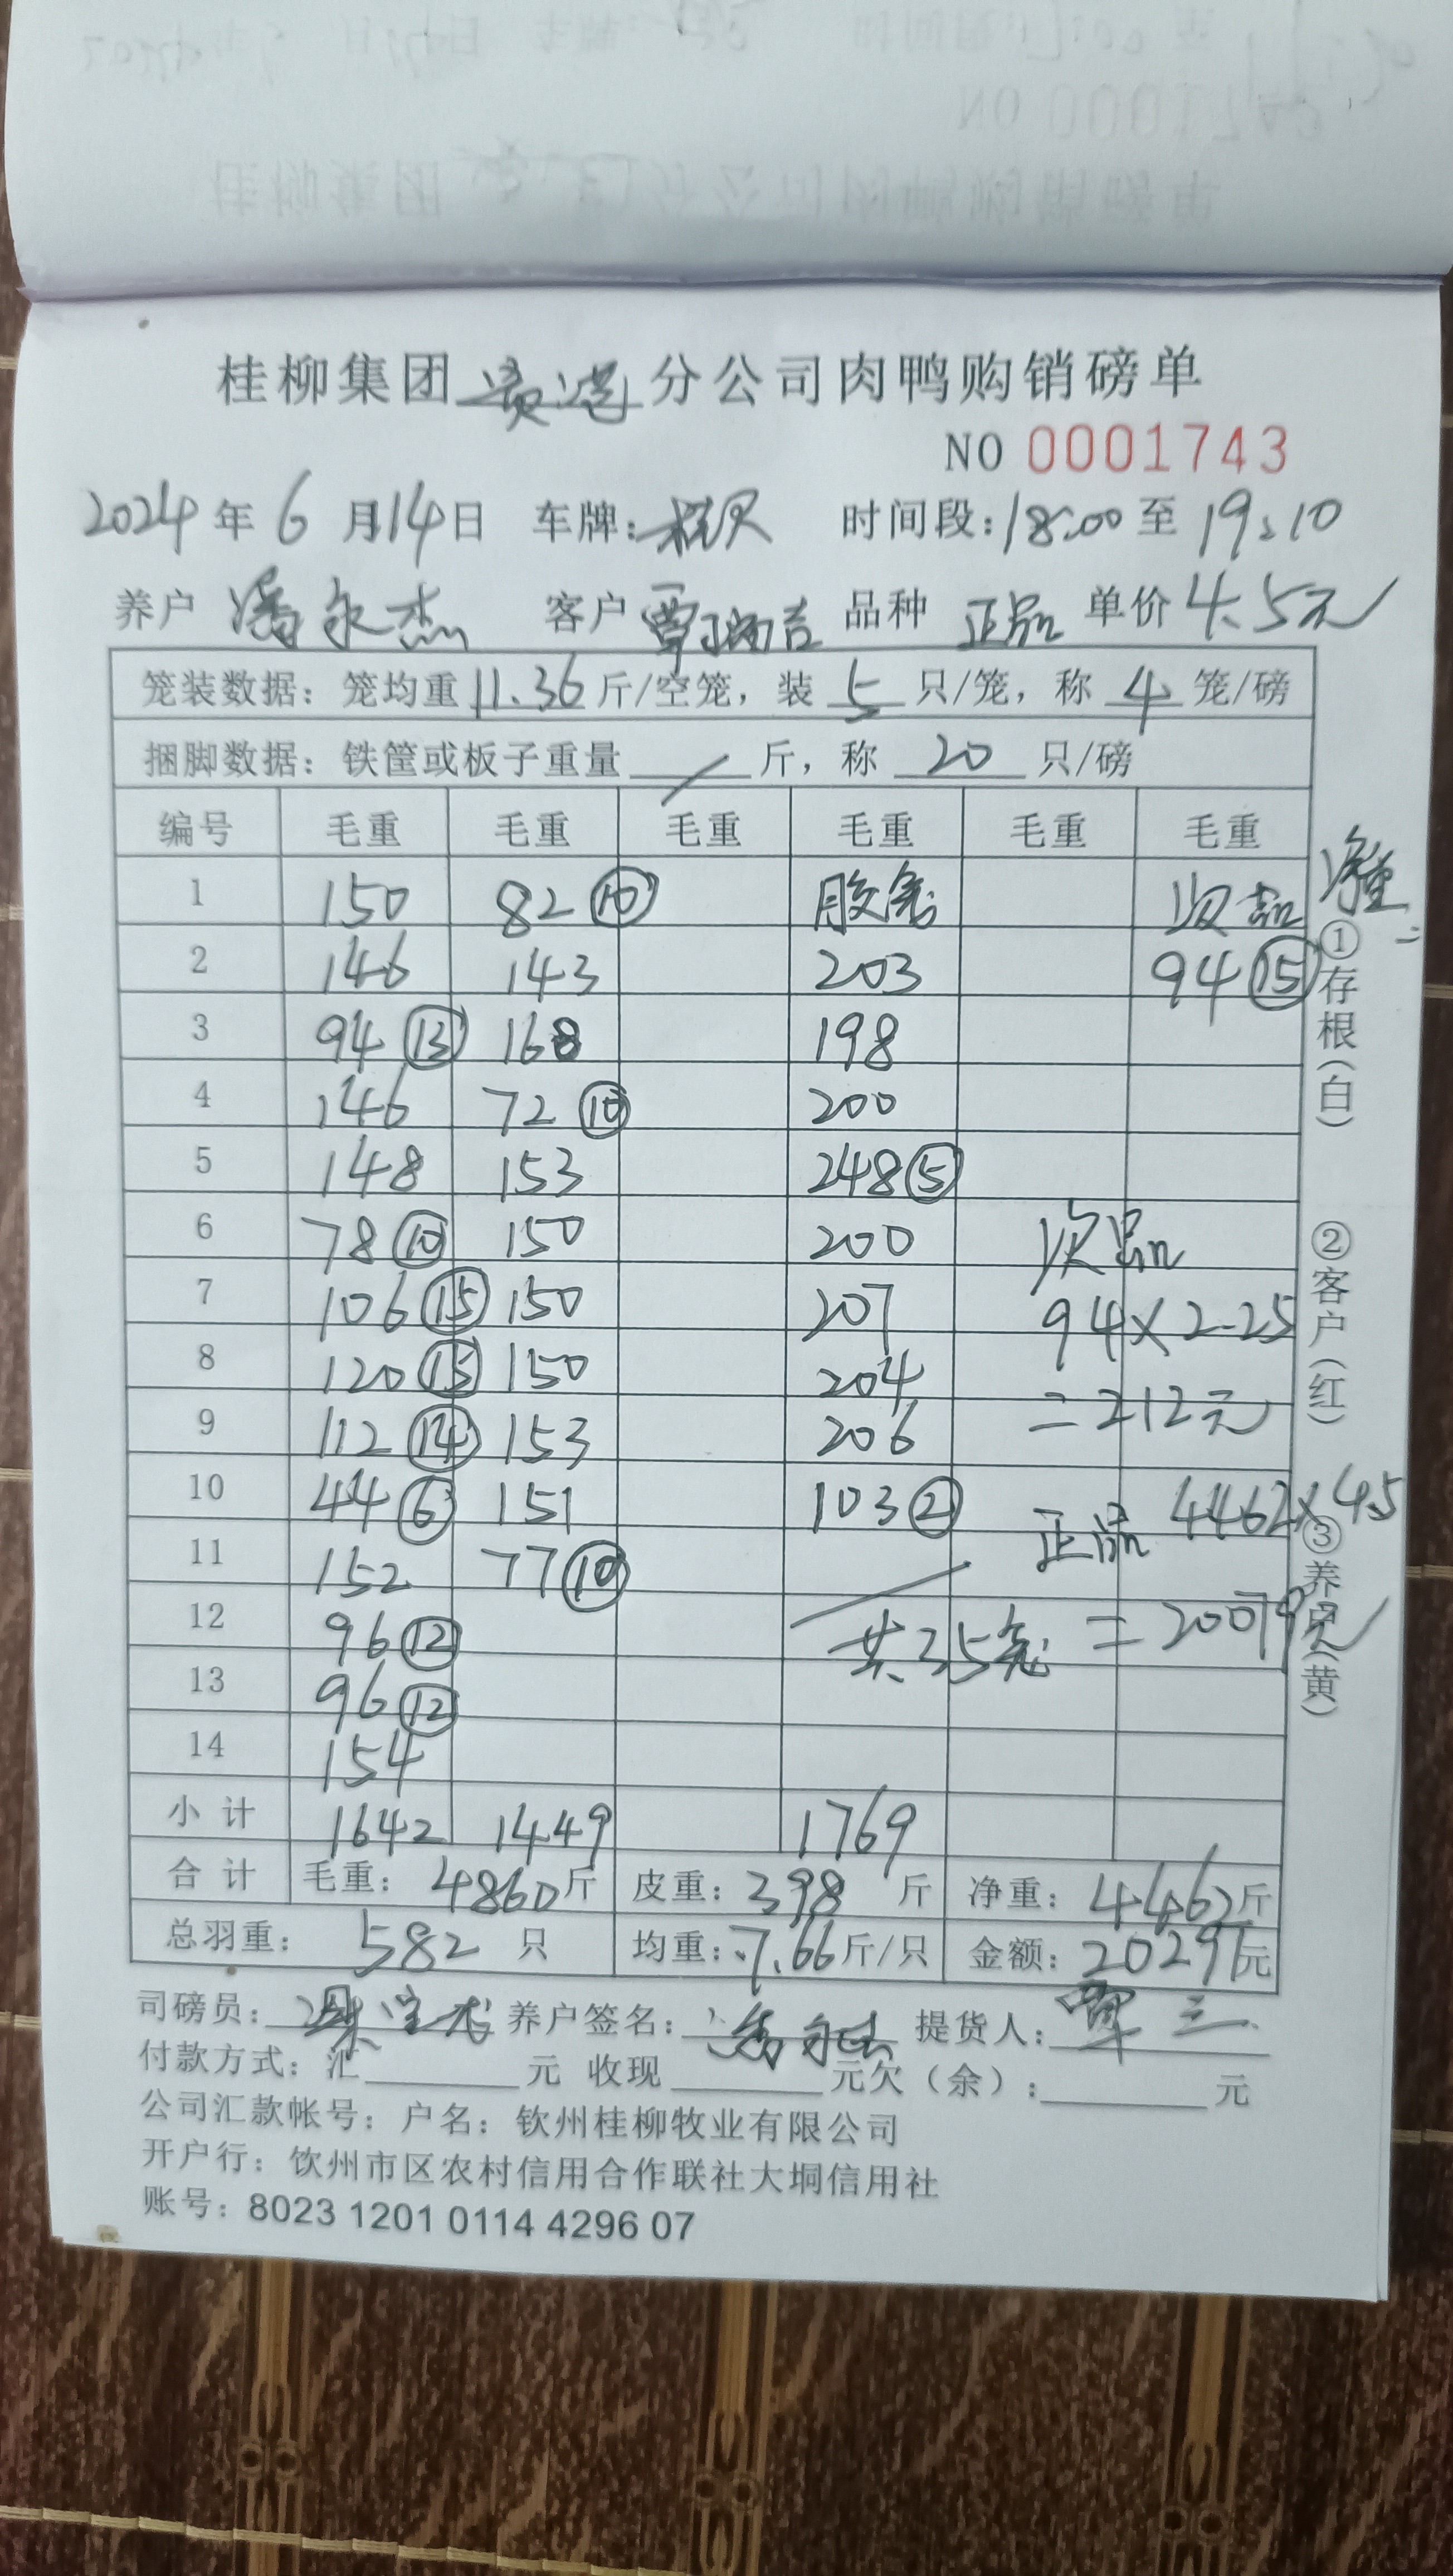 桂柳集团贵港分公司肉鸭购销磅单
NO 0001743
2024年6月14日 车牌: 时间段:18:00至19:10
养户 潘永杰 客户 覃瑞吉 品种 正品 单价 4.5元
笼装数据: 笼均重 11.36 斤/空笼, 装 5 只/笼, 称 4 笼/磅
捆脚数据: 铁筐或板子重量 / 斤, 称 20 只/磅
编号 毛重 毛重 毛重 毛重 毛重 毛重
1 150 82 ⑩ 胶笼 次品 净重
2 146 143 203 94 ⑮
3 94 ⑬ 168 198
4 146 72 ⑩ 200
5 148 153 248 ⑤
6 78 ⑩ 150 200 次品
7 106 ⑮ 150 207 94×2.25
8 120 ⑮ 150 204
9 112 ⑭ 153 206 =212元
10 44 ⑥ 151 103 ② 正品 4462×4.5
11 152 77 ⑩
12 96 ⑫ 共35笼 =20079元
13 96 ⑫
14 154
小计 1642 1449 1769
合计 毛重: 4860斤 皮重: 398 斤 净重: 4462斤
总羽重: 582 只 均重: 7.66斤/只 金额: 20291元
司磅员: 养户签名: 提货人: 覃三
付款方式: 汇 元 收现 元欠(余): 元
公司汇款帐号: 户名: 钦州桂柳牧业有限公司
开户行: 钦州市区农村信用合作联社大垌信用社
账号: 8023 1201 0114 4296 07
①存根(白) ②客户(红) ③养户(黄)